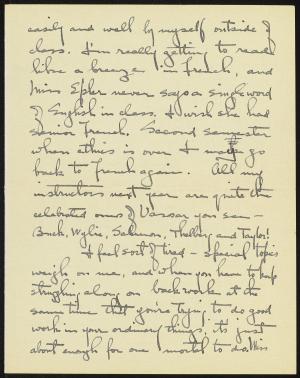 easily and well by myself outside of
class. I'm really getting to read
like a breeze in French, and
Miss Epler never says a single word
of English in class. I wish she had
senior French. Second semester
when ethics is over I may go
back to French again. All my
instructors next year are quite the
celebrated ones of Vassar you see –
Buck, Wylie, Salmon, Thelberg and Taylor!
I feel sort of tired – special topics
weigh on me, and when you have to keep
struggling along on back work at the
same time that you're trying to do good
work in your ordinary things, it's just
about enough for one mortal to do. Miss